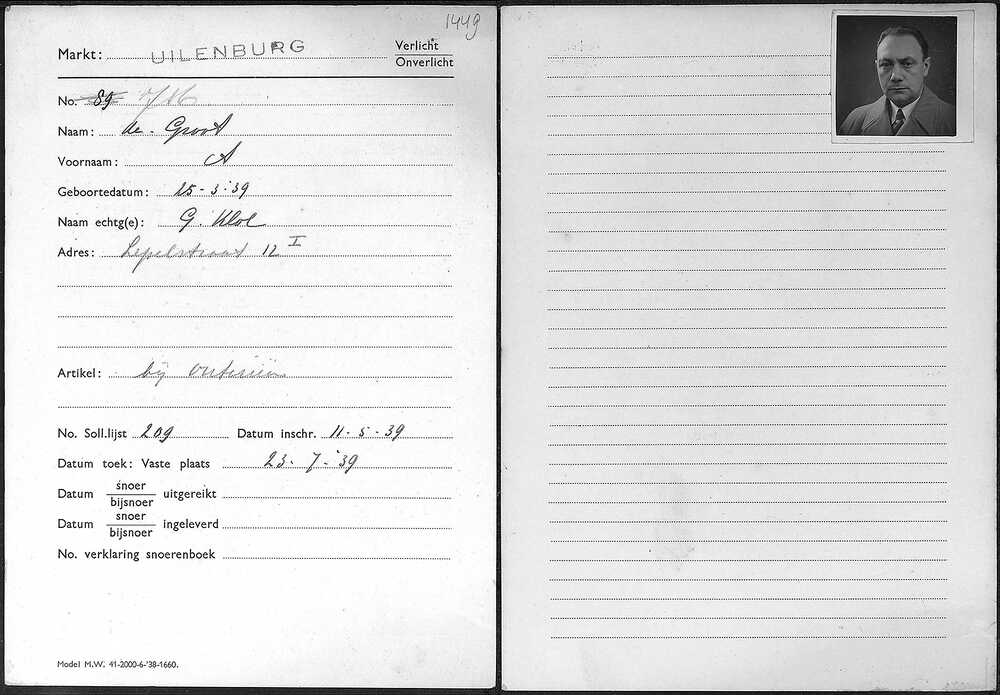 1449
Markt: UILENBURG Verlicht
Onverlicht
No. 89 716
Naam: de Groot
Voornaam: A
Geboortedatum: 25-3-'39
Naam echtg(e): G. Klol
Adres: Lepelstraat 12 I
Artikel: bij
No. Soll.lijst 209 Datum inschr. 11-5-39
Datum toek: Vaste plaats 23-7-'39
Datum snoer
bijsnoer uitgereikt
Datum snoer
bijsnoer ingeleverd
No. verklaring snoerenboek
Model M.W. 41-2000-6-'38-1660.